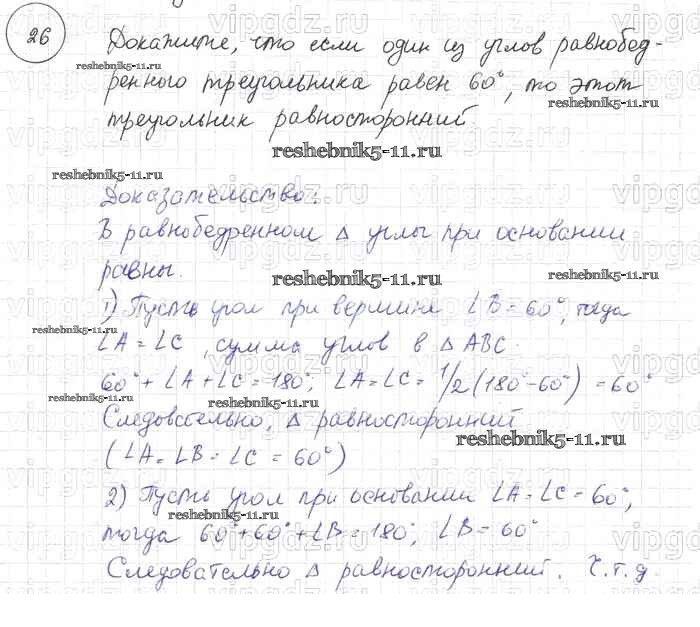 26
Докажите, что если один из углов равнобед-
ренного треугольника равен 60°, то этот
треугольник равносторонний.
reshebnik5-11.ru
Доказательство:
В равнобедренном Δ углы при основании
равны.
1) Пусть угол при вершине ∠B = 60°, тогда
∠A = ∠C, сумма углов в ΔABC.
60° + ∠A + ∠C = 180°; ∠A = ∠C = 1/2(180° - 60°) = 60°
Следовательно, Δ равносторонний
(∠A = ∠B = ∠C = 60°)
2) Пусть угол при основании ∠A = ∠C = 60°,
тогда 60° + 60° + ∠B = 180°; ∠B = 60°
Следовательно Δ равносторонний. Ч.т.д.